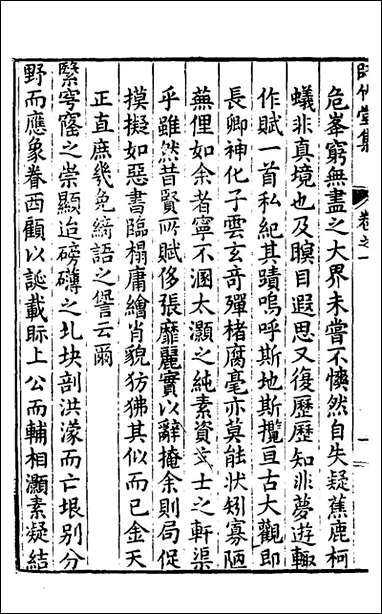 時偕堂集 卷之一 一
危峯窮無盡之大界未嘗不憐然自失疑蕉鹿柯
蟻非真境也及瞑目遐思又復歷歷知非夢遊輙
作賦一首私紀其蹟嗚呼斯地斯攬亘古大觀即
長卿神化子雲玄奇殫楮腐毫亦莫能狀矧寡陋
蕪俚如余者寧不溷太灝之純素資文士之軒渠
乎雖然昔賢所賦侈張靡麗實以辭掩余則局促
摸擬如惡書臨榻庸繪肖貌彷彿其似而已金天
正直庶幾免綺語之訾云爾
緊穹窿之崇顯迨磅礴之圠坱剖洪濛而亡垠别分
野而應象眷西顧以誕載眎上公而輔相灝素凝結